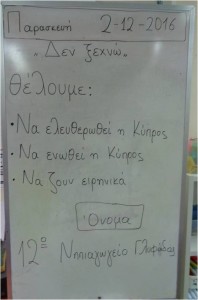 Παρασκευή 2-12-2016
„Δεν ξεχνώ"
Θέλουμε:
• Να ελευθερωθεί η Κύπρος
• Να ενωθεί η Κύπρος
• Να ζουν ειρηνικά
Όνομα
12º Νηπιαγωγείο Γλυφάδας